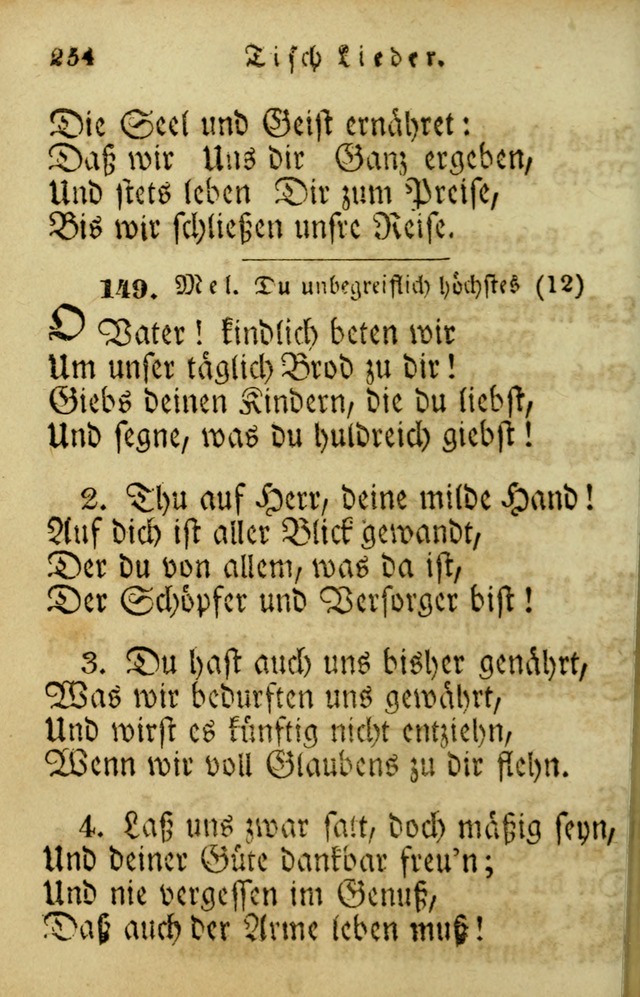 254 Tisch Lieder.
Die Seel und Geist ernåhret:
Daß wir Uns dir Ganz ergeben,
Und stets leben Dir zum Preise,
Bis wir schließen unsre Reise.
149. Mel. Du unbegreiflich höchstes (12)
O Vater! kindlich beten wir
Um unser tåglich Brod zu dir!
Giebs deinen Kindern, die du liebst,
Und segne, was du huldreich giebst!
2. Thu auf Herr, deine milde Hand!
Auf dich ist aller Blick gewandt,
Der du von allem, was da ist,
Der Schöpfer und Versorger bist!
3. Du hast auch uns bisher genåhrt,
Was wir bedurften uns gewåhrt,
Und wirst es künftig nicht entziehn,
Wenn wir voll Glaubens zu dir flehn.
4. Laß uns zwar satt, doch mäßig seyn,
Und deiner Güte dankbar freu'n;
Und nie vergessen im Genuß,
Daß auch der Arme leben muß!